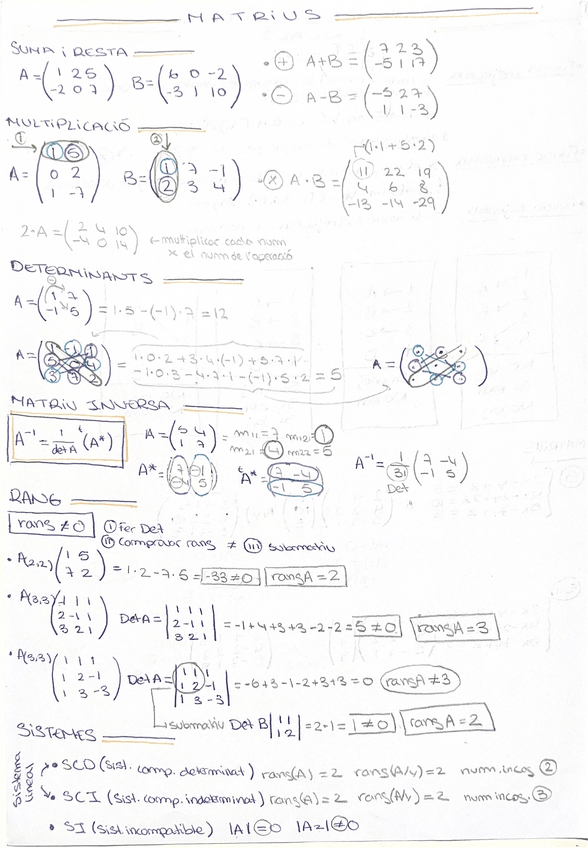 MATRIUS
SUMA i RESTA
A = (1 2 5
-2 0 7)
B = (6 0 -2
-3 1 10)
• + A+B = (7 2 3
-5 1 17)
• - A-B = (-5 2 7
1 1 -3)
MULTIPLICACIÓ
① ②
A = (1 5
0 2
1 -7)
B = (1 7 -1
2 3 4)
(1·1+5·2)
• x A·B = (11 22 19
4 6 8
-13 -14 -29)
2·A = (2 4 10
-4 0 14)
← multiplicar cada num
x el num de l'operació
DETERMINANTS
A = (1 7
-1 5) = 1·5-(-1)·7 = 12
A = (1 -1 1
5 0 4
3 7 2) = 1·0·2+3·4·(-1)+5·7·1
-1·0·3-4·7·1-(-1)·5·2 = 5
A =
MATRIU INVERSA
A⁻¹ = 1/detA ᵗ(A*)
A = (5 4
1 7) = m11=7 m12=1
m21=4 m22=5
A* = (7 -1
-4 5)
ᵗA* = (7 -4
-1 5)
A⁻¹ = 1/31 (7 -4
-1 5)
Det
RANG
rang ≠0
① Fer Det
② Comprovar rang ≠ ③ submatriu
• A(2,2) (1 5
7 2) = 1·2-7·5 = -33≠0 rangA=2
• A(3,3) (1 1 1
2 -1 1
3 2 1) DetA = |1 1 1
2 -1 1
3 2 1| = -1+4+3+3-2-2 = 5≠0 rangA=3
• A(3,3) (1 1 1
1 2 -1
1 3 -3) DetA = |1 1 1
1 2 -1
1 3 -3| = -6+3-1-2+3+3=0 rangA≠3
submatriu Det B |1 1
1 2| = 2-1 = 1≠0 rangA=2
SISTEMES
Sistema lineal
• SCD (sist. comp. determinat) rang(A)=2 rang(A/v)=2 num.incog ②
• SCI (sist. comp. indeterminat) rang(A)=2 rang(A/v)=2 num incog. ③
• SI (sist. incompatible) |A|=0 |A2|≠0